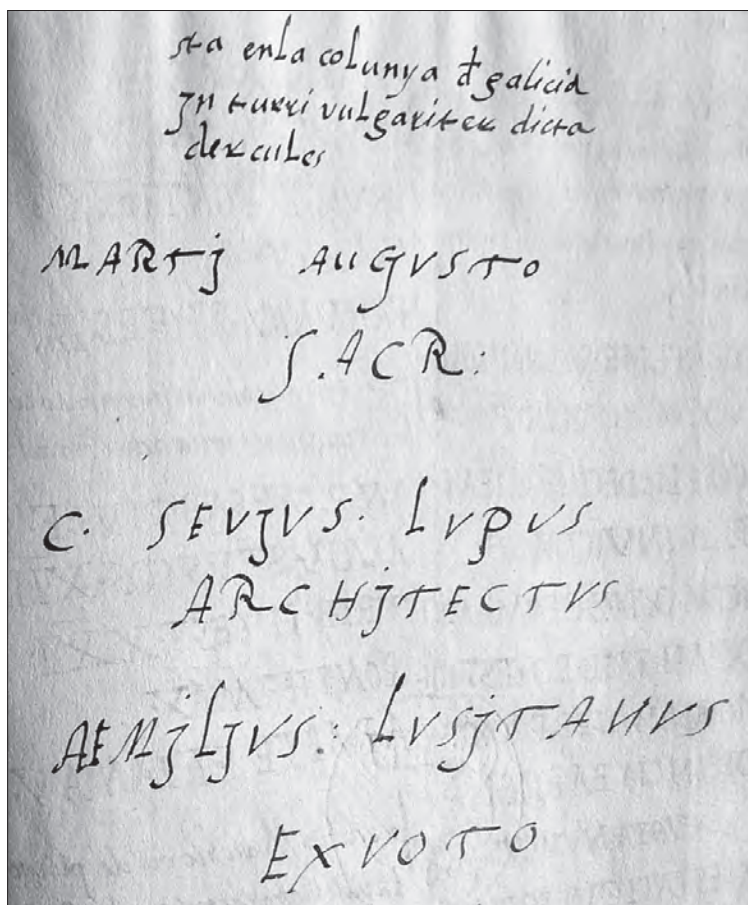 sta en la colunya đ galicia
jn turri vulgariter dicta
dercules
MARTj AUGVSTO
S.ACR:
C. SEVjVS. LVPVS
ARCHjTECTVS
ÆMjLjVS: LVSjTANVS
EXVOTO